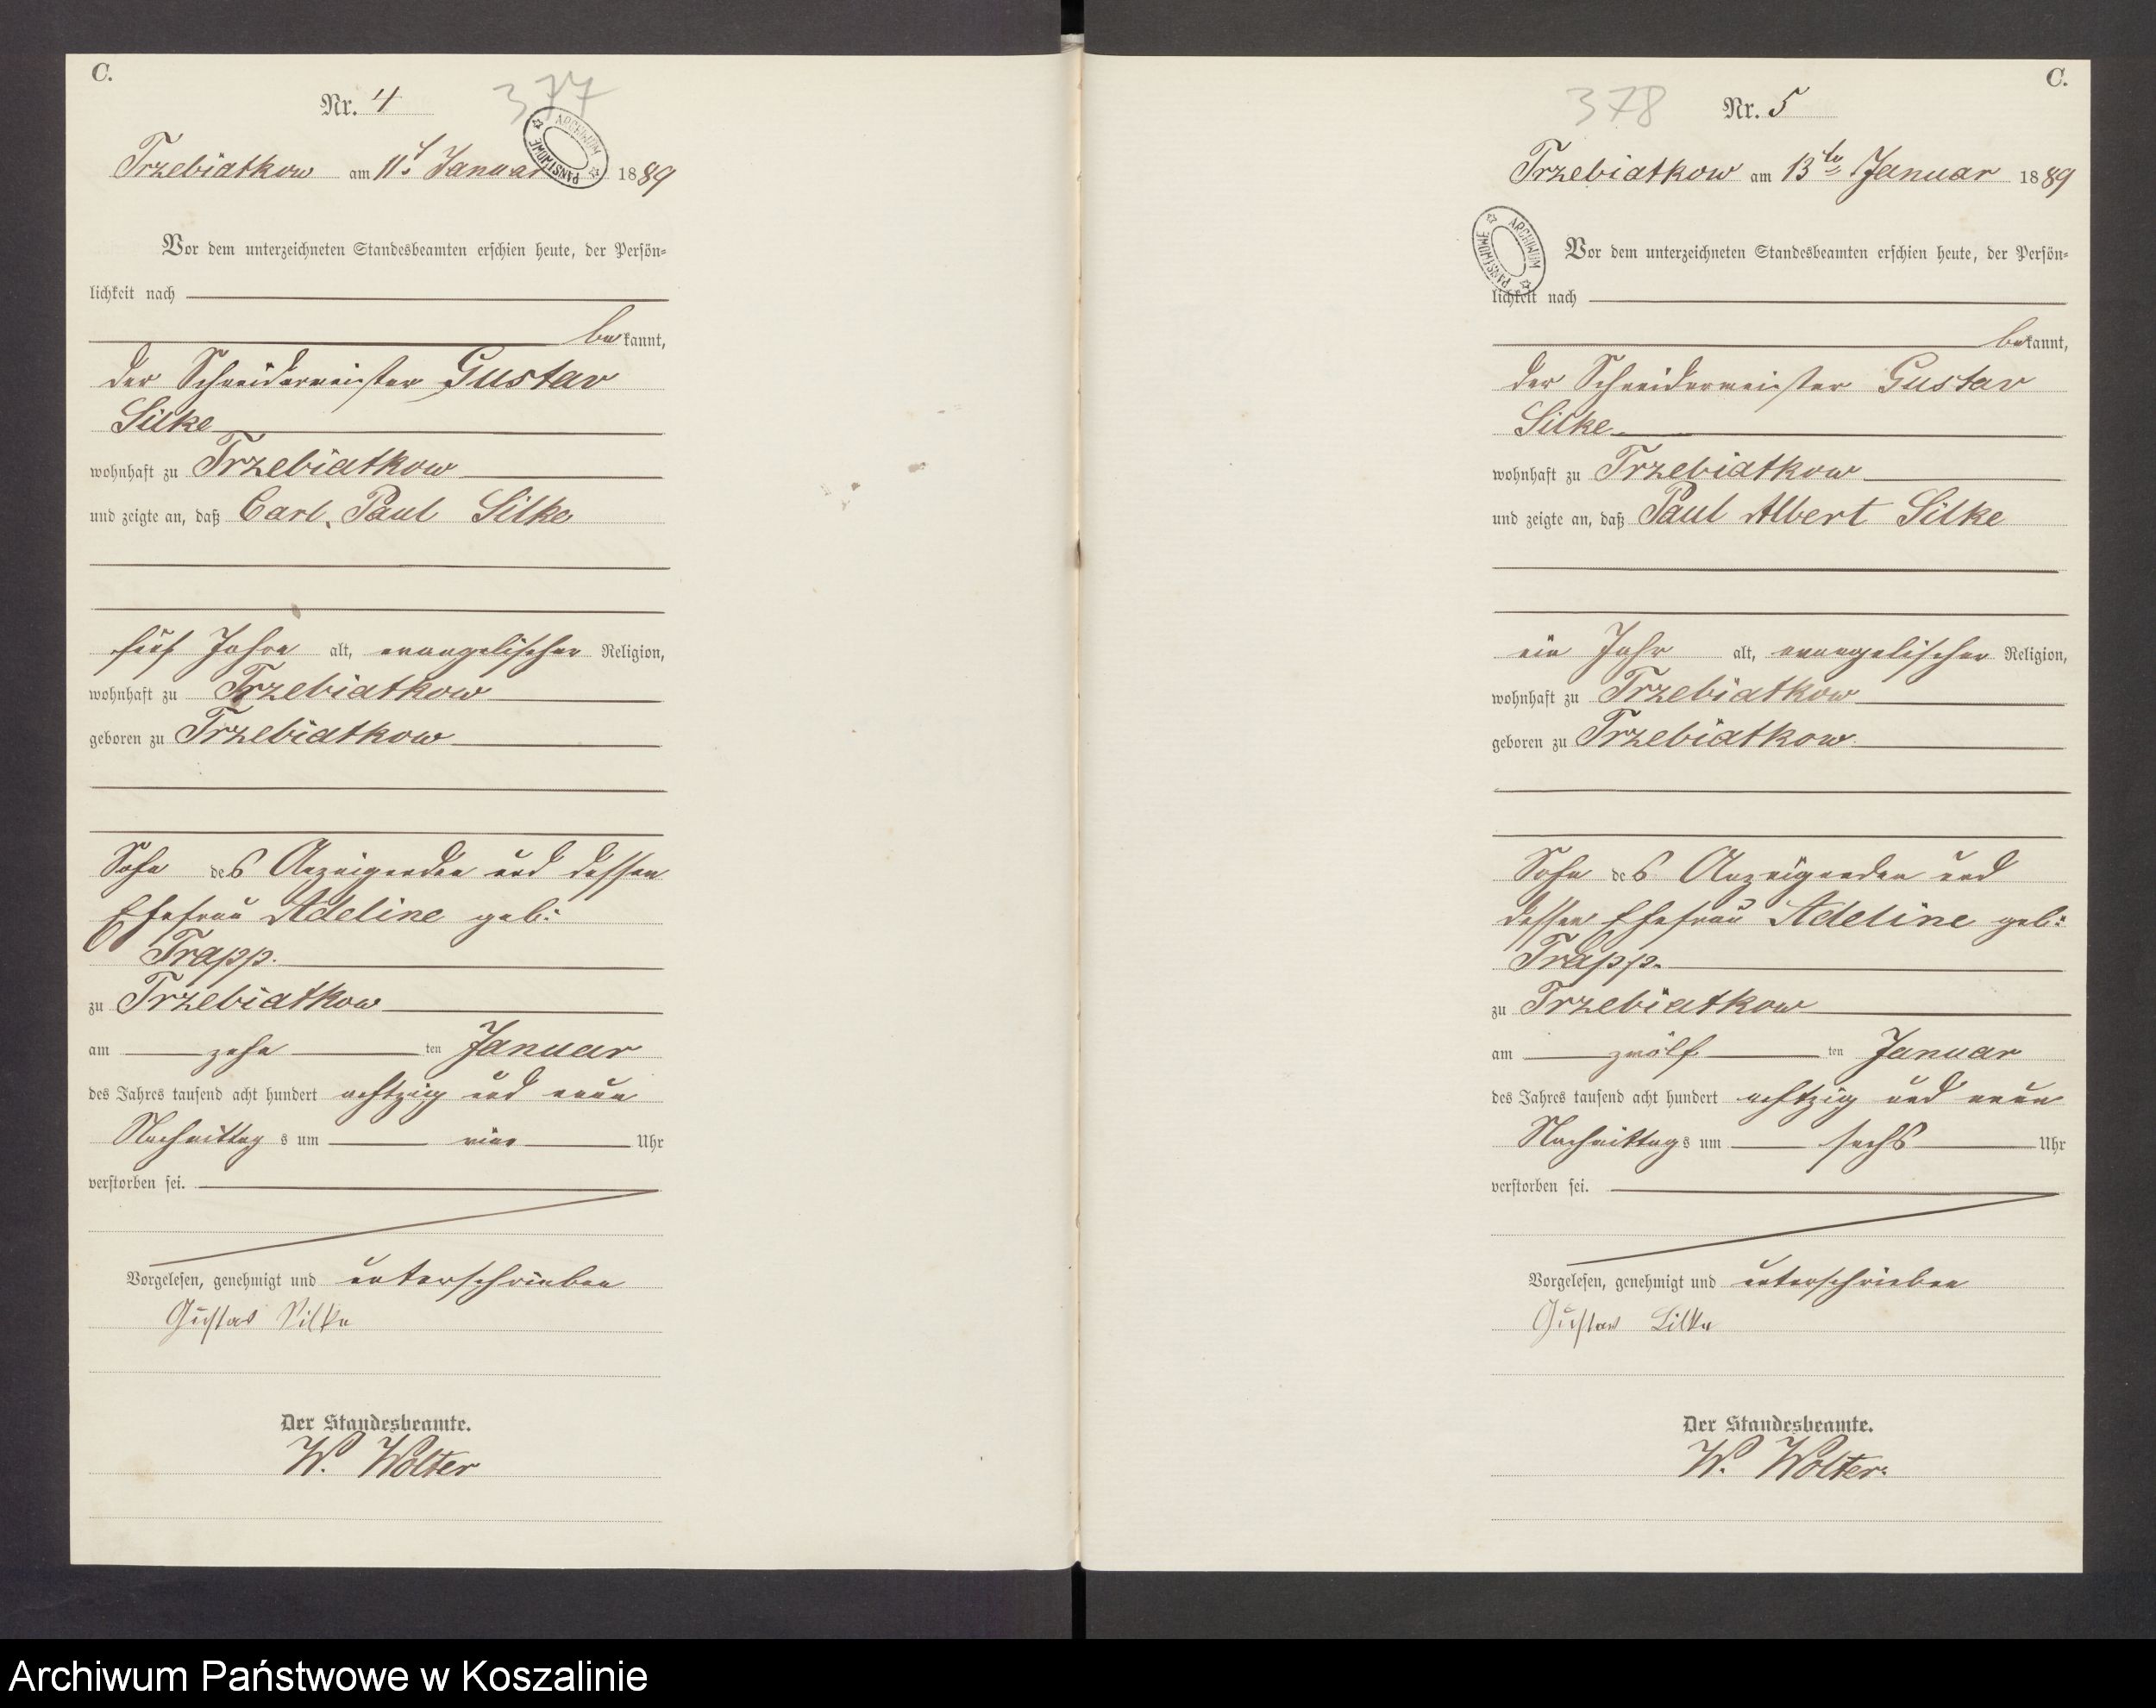 C.
377
Nr. 4
ARCHIWUM PAŃSTWOWE
Trzebiatkow am 11t Januar 1889
Vor dem unterzeichneten Standesbeamten erschien heute, der Persön-
lichkeit nach
bekannt,
der Schneidermeister Gustav
Silke
wohnhaft zu Trzebiatkow
und zeigte an, daß Carl, Paul Silke
fünf Jahre alt, evangelischer Religion,
wohnhaft zu Trzebiatkow
geboren zu Trzebiatkow
Sohn des Anzeigenden und dessen
Ehefrau Adeline geb:
Trapp.
zu Trzebiatkow
am zehn ten Januar
des Jahres tausend acht hundert achtzig und neun
Nachmittags um vier Uhr
verstorben sei.
Vorgelesen, genehmigt und unterschrieben
Gustav Silke
Der Standesbeamte.
W. Wolter
C.
378
Nr. 5
Trzebiatkow am 13ten Januar 1889
ARCHIWUM PAŃSTWOWE
Vor dem unterzeichneten Standesbeamten erschien heute, der Persön-
lichkeit nach
bekannt,
der Schneidermeister Gustav
Silke
wohnhaft zu Trzebiatkow
und zeigte an, daß Paul Albert Silke
ein Jahr alt, evangelischer Religion,
wohnhaft zu Trzebiatkow
geboren zu Trzebiatkow
Sohn des Anzeigenden und
dessen Ehefrau Adeline geb:
Trapp.
zu Trzebiatkow
am zwölf ten Januar
des Jahres tausend acht hundert achtzig und neun
Nachmittags um sechs Uhr
verstorben sei.
Vorgelesen, genehmigt und unterschrieben
Gustav Silke
Der Standesbeamte.
W. Wolter.
Archiwum Państwowe w Koszalinie